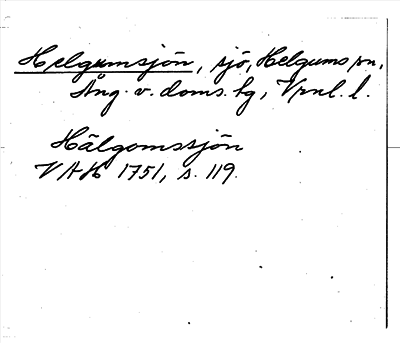 Helgumsjön, sjö, Helgums sn,
Ång. v. doms. tg, Vnl. l.
Hälgomssjön
VAH 1751, s. 119.